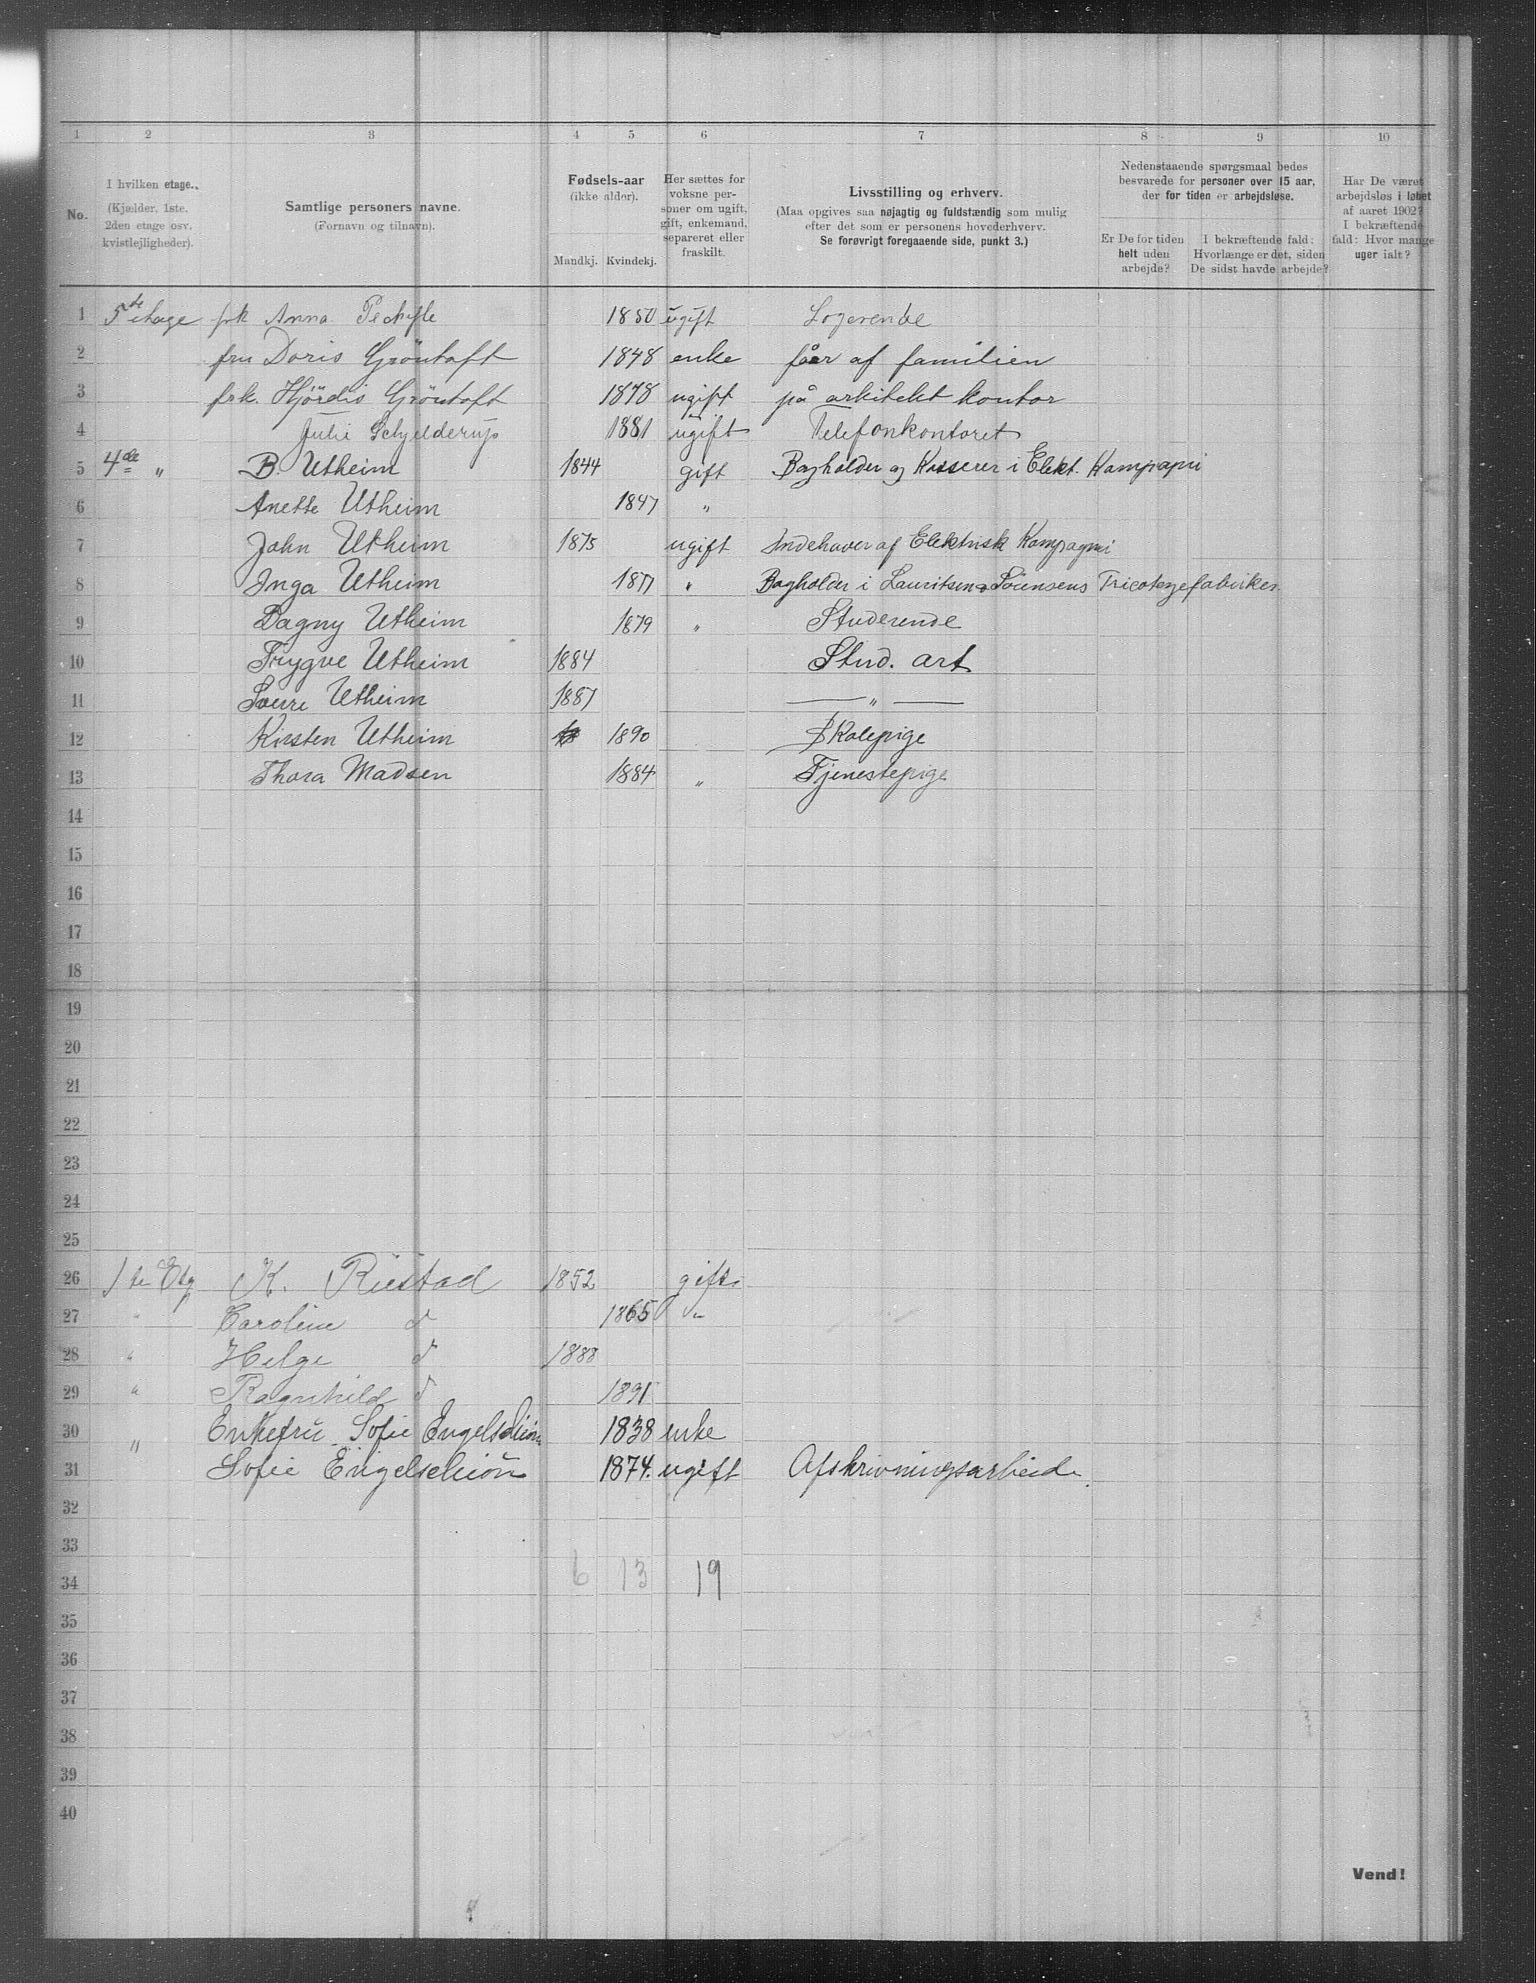 1 2 3 4 5 6 7 8 9 10
No.
I hvilken etage.
(Kjælder, 1ste, 2den etage osv. kvistlejligheder).
Samtlige personers navne.
(Fornavn og tilnavn).
Fødsels-aar
(ikke alder).
Mandkj. Kvindekj.
Her sættes for voksne personer om ugift, gift, enkemand, separeret eller fraskilt.
Livsstilling og erhverv.
(Maa opgives saa nøjagtig og fuldstændig som mulig efter det som er personens hovederhverv.
Se forøvrigt foregaaende side, punkt 3.)
Nedenstaaende spørgsmaal bedes besvarede for personer over 15 aar, der for tiden er arbejdsløse.
Er De for tiden helt uden arbejde?
I bekræftende fald: Hvorlænge er det, siden De sidst havde arbejde?
Har De været arbejdsløs i løbet af aaret 1902? I bekræftende fald: Hvor mange uger ialt?
1 5te etage frk Anna 1850 ugift Logerende
2 fru Doris Gröntoft 1848 enke får af familien
3 frk. Hjördis Gröntoft 1878 ugift på arkitekt kontor
4 Julie Schjelderup 1881 ugift Telefonkontoret
5 4de " B. Utheim 1844 gift Bogholder og Kasserer i Elekt. Kompagni
6 Anette Utheim 1847 "
7 John Utheim 1875 ugift Indehaver af Elektrisk Kompagni
8 Inga Utheim 1877 " Bogholder i Lauritsen & Sörensens Tricotagefabriker
9 Dagny Utheim 1879 " Studerende
10 Trygve Utheim 1884 Stud. art
11 Sverre Utheim 1887 — " —
12 Kirsten Utheim 1890 Skolepige
13 Thora Madsen 1884 " Tjenestepige
14
15
16
17
18
19
20
21
22
23
24
25
26 1ste Etg K. Riestad 1852 gift
27 " Caroline d 1865 "
28 " Helge d 1888
29 " Ragnhild d 1891
30 " Enkefru Sofie Engelschiön 1838 enke
31 Sofie Engelschiön 1874. ugift Afskrivningsarbeide.
32
33
34 6 13 19
35
36
37
38
39
40
Vend!